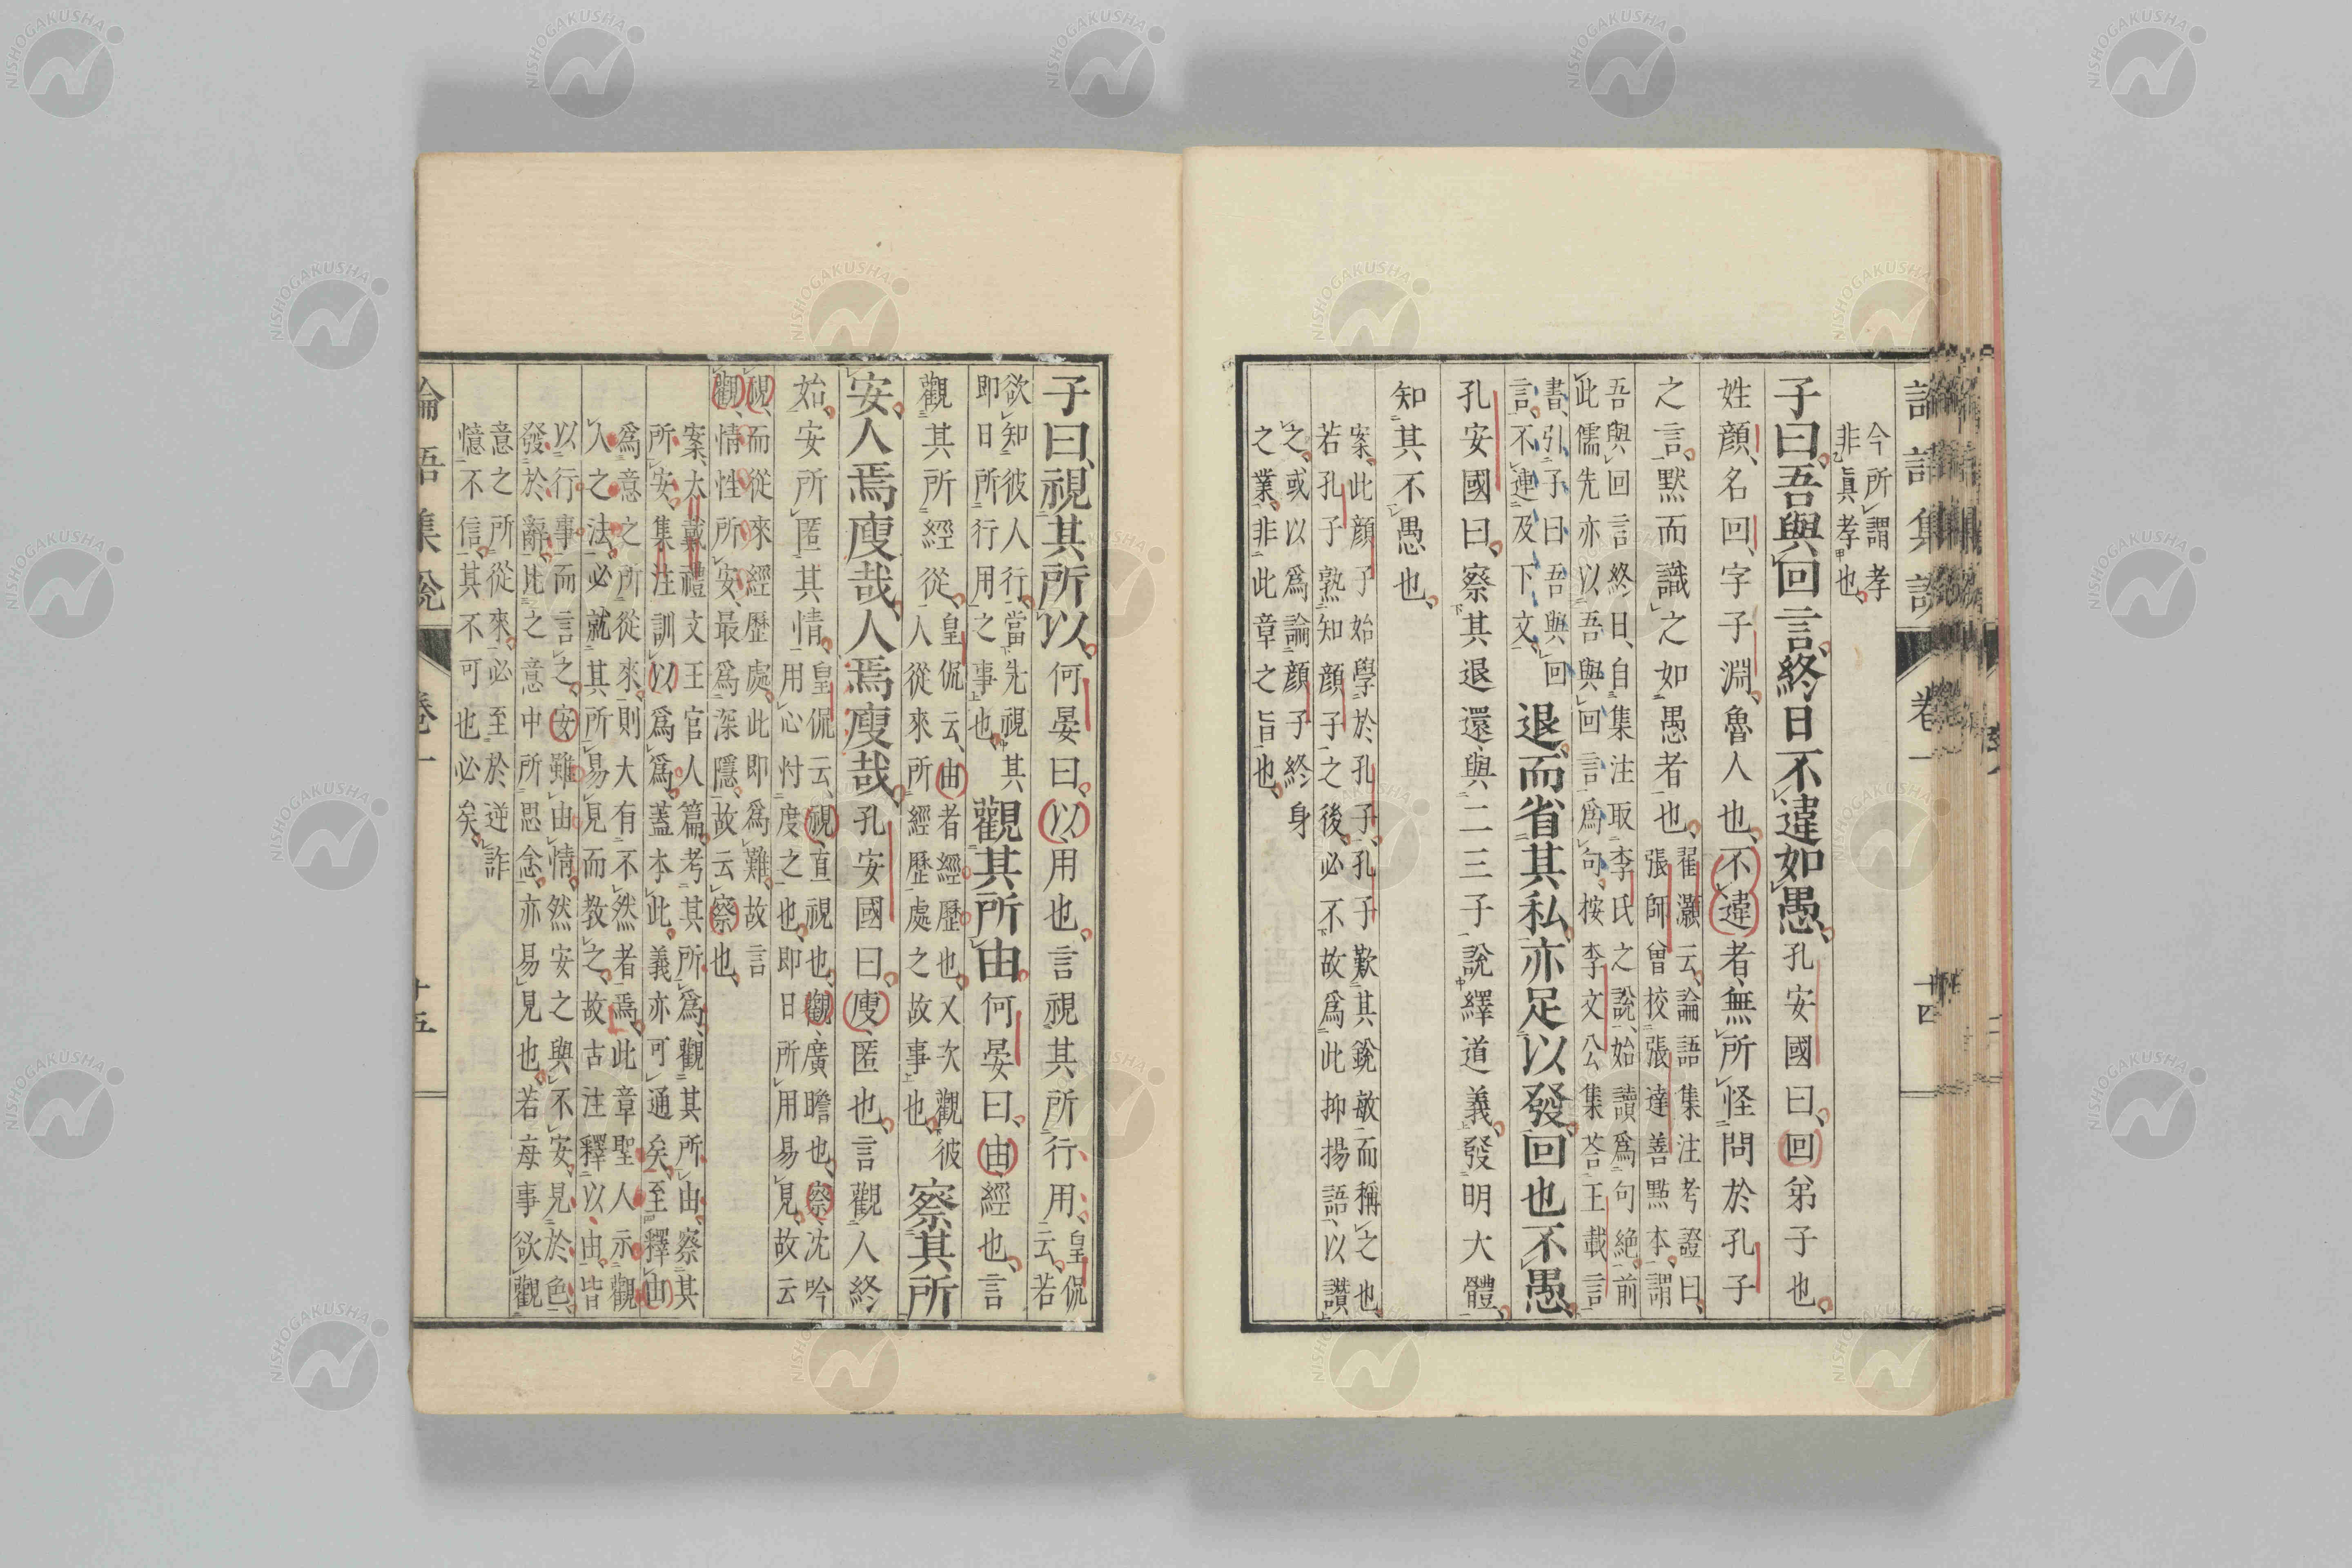 今所謂孝
非眞孝也
子曰吾與回言終日不違如愚孔安國曰回弟子也
姓顏名回字子淵魯人也不違者無所怪問於孔子
之言默而識之如愚者也
翟灝云論語集注考證曰
張師曾校張達善點本謂
吾與回言終日自集注取李氏之說始讀爲句絶前
此儒先亦以吾與回言爲句按李文公集荅王載言
書引子曰吾與回
言不連及下文
退而省其私亦足以發回也不愚
孔安國曰察其退還與二三子說繹道義發明大體
知其不愚也
案此顏子始學於孔子孔子歎其銳敏而稱之也
若孔子熟知顏子之後必不故爲此抑揚語以讚
之或以爲論顏子終身
之業非此章之旨也
卷一
十四
子曰視其所以何晏曰以用也言視其所行用
皇侃
云若
欲知彼人行當先視其
即日所行用之事也
觀其所由何晏曰由經也言
觀其所經從
皇侃云由者經歷也又次觀彼
人從來所經歷處之故事也
察其所
安人焉廋哉人焉廋哉孔安國曰廋匿也言觀人終
始安所匿其情
皇侃云視直視也觀廣瞻也察沈吟
用心忖度之也即日所用易見故云
視而從來經歷處此即爲難故言
觀情性所安最爲深隱故云察也
案大戴禮文王官人篇考其所爲觀其所由察其
所安集注訓以爲爲蓋本此義亦可通矣至釋由
爲意之所從來則大有不然者焉此章聖人示觀
人之法必就其所易見而教之故古注釋以由皆
以行事而言之安雖由情然安之與不安見於色
發於辭比之意中所思念亦易見也若每事欲觀
意之所從來必至於逆詐
憶不信其不可也必矣
論語集說
卷一
十五
NISHOGAKUSHA